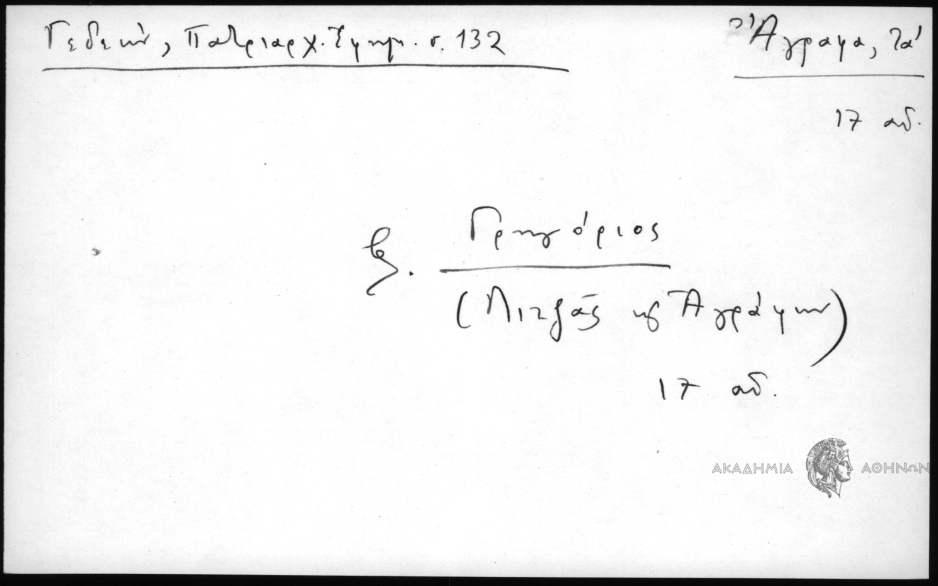 Γεδεών, Πατριαρχ. Ἐφημ. σ. 132
Ἄγραφα, Τά
17 αἰ.
ξ. Γρηγόριος
(Λιτζᾶς κ Ἀγράφων)
17 αἰ.
ΑΚΑΔΗΜΙΑ ΑΘΗΝΩΝ